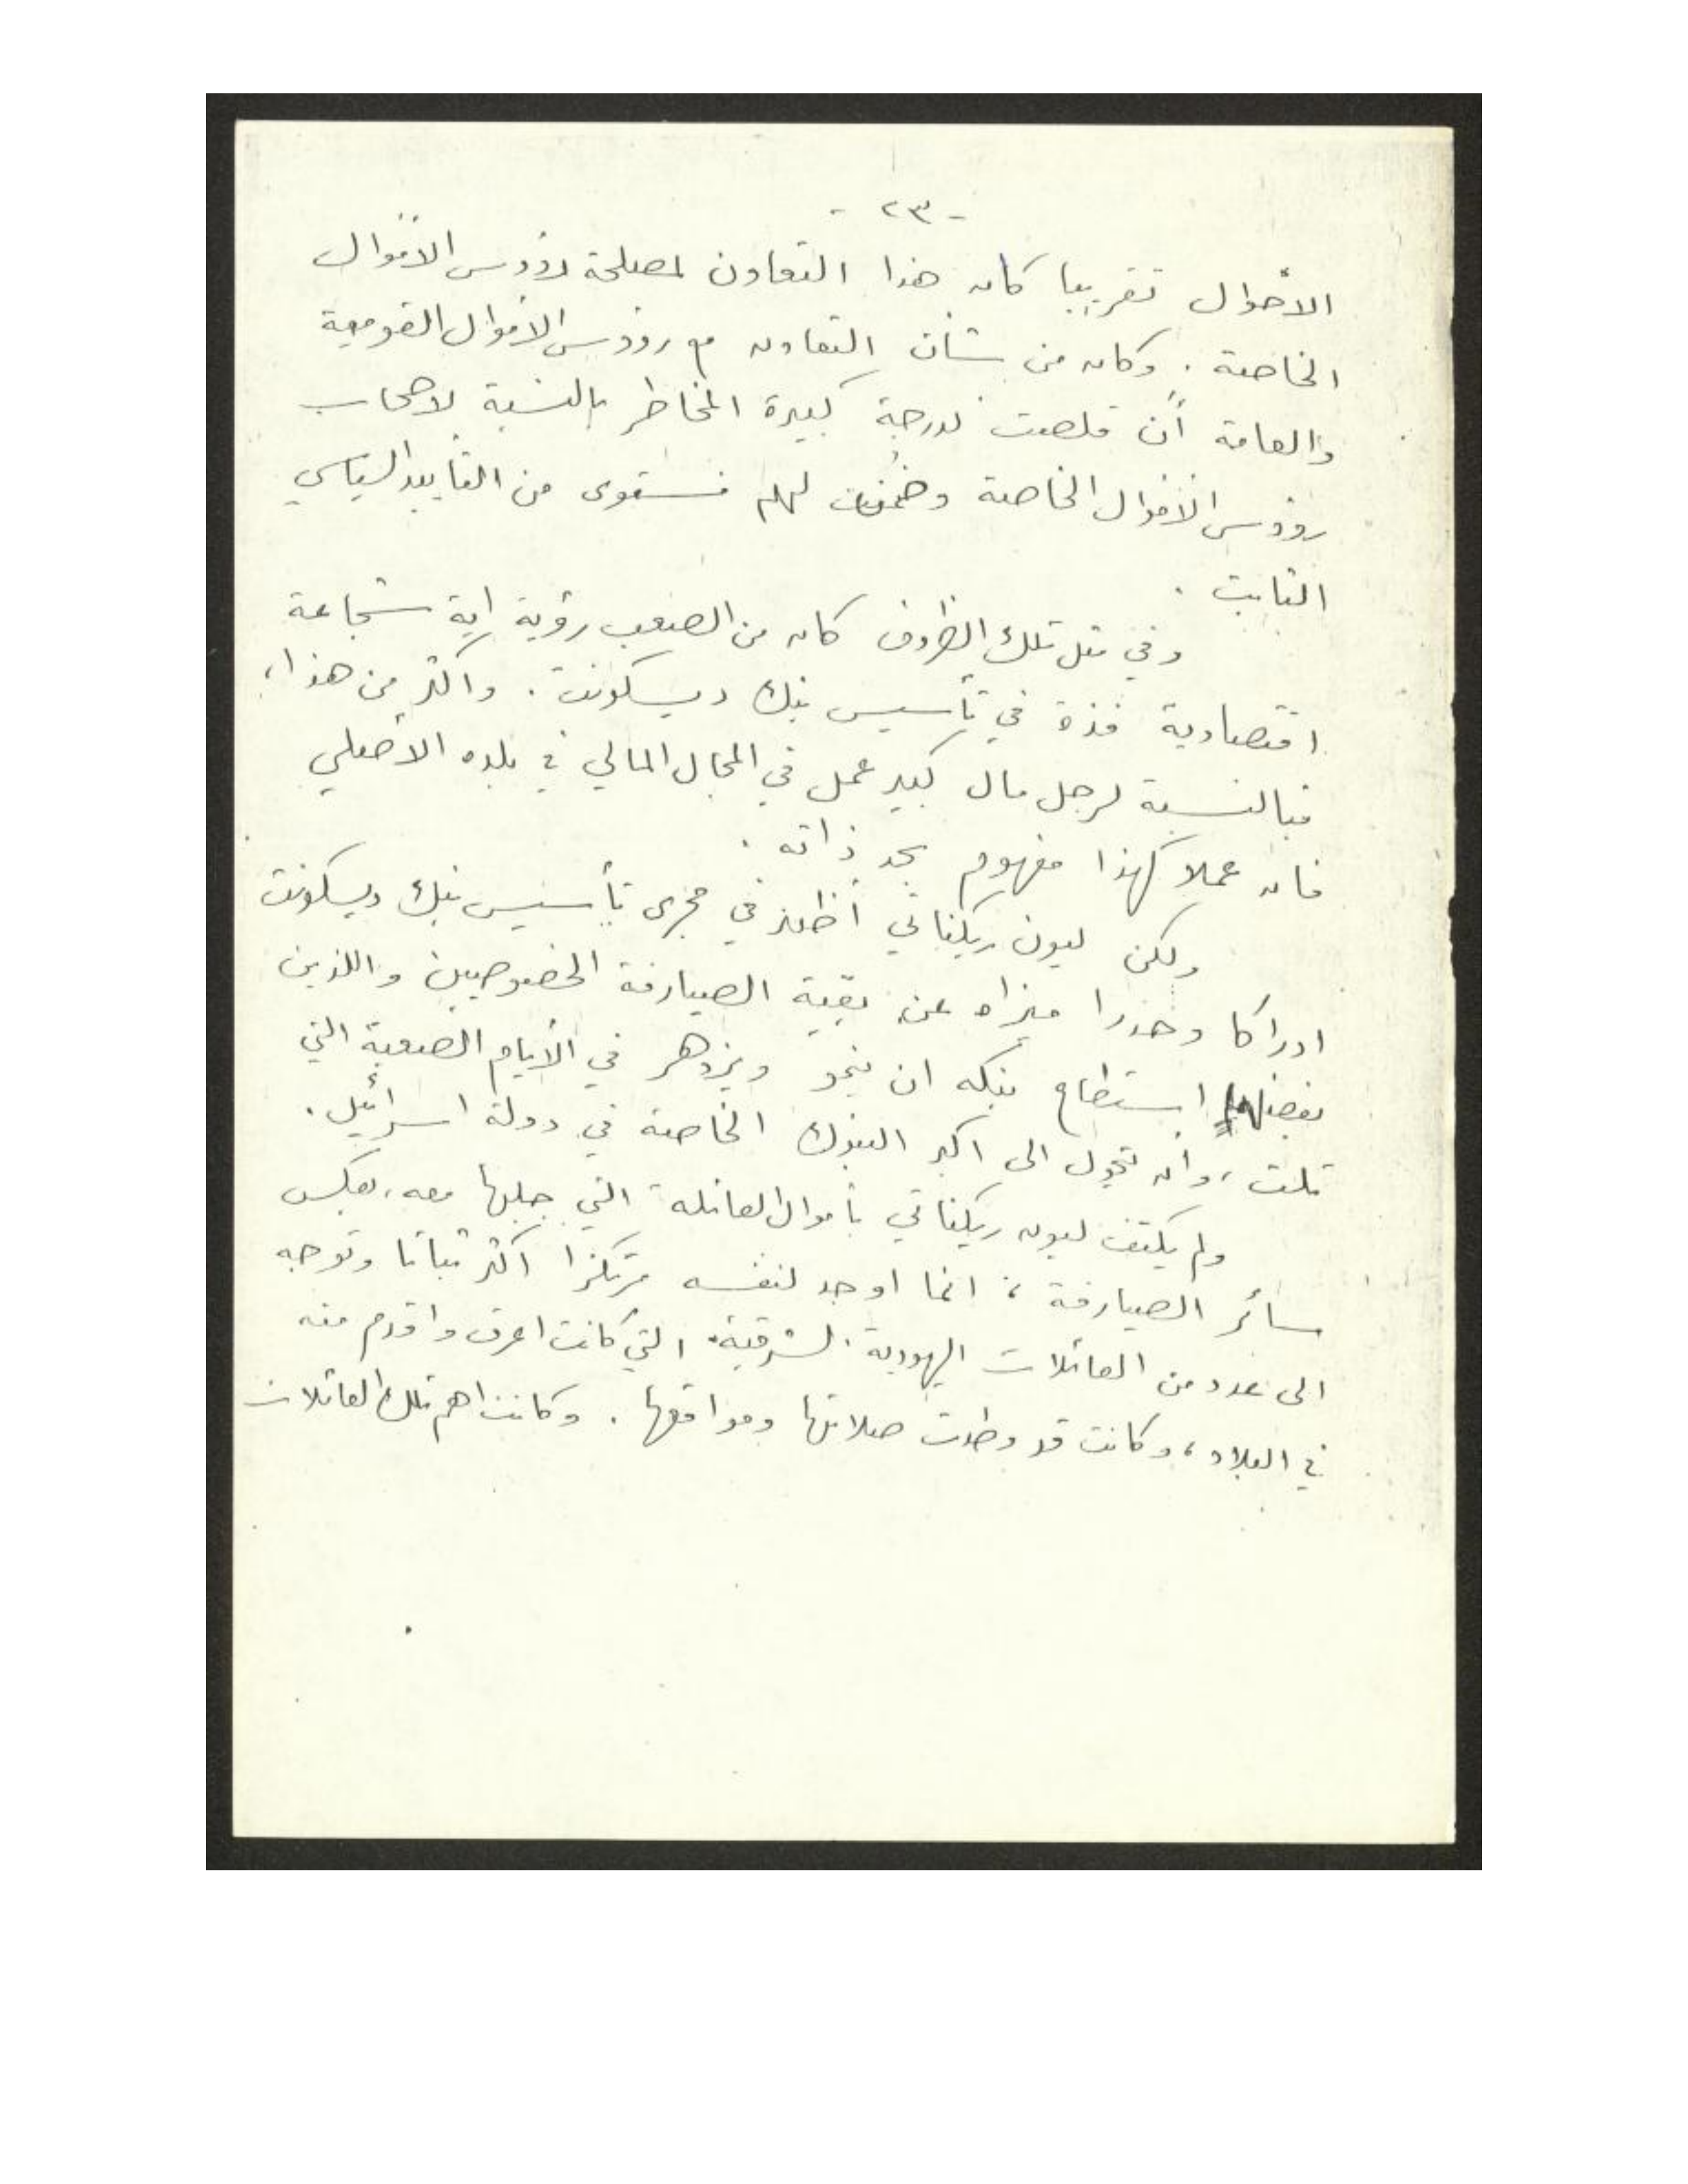 - ٢٣ -
الأحوال تقريبا كان هذا التعاون لمصلحة رؤوس الأموال
الخاصة . وكان من شأن التعاون مع رؤوس الأموال القومية
والعامة أن قلصت لدرجة كبيرة المخاطر بالنسبة لاصحاب
رؤوس الأموال الخاصة وضمنت لهم مستوى من التأييد السياسي
الثابت .
وفي مثل تلك الظروف كان من الصعب رؤية اية شجاعة
اقتصادية فذة في تأسيس بنك ديسكونت . واكثر من هذا ،
فبالنسبة لرجل مال كبير عمل في المجال المالي في بلده الأصلي
فان عملا كهذا مفهوم بحد ذاته .
ولكن ليون ريكناتي أظهر في مجرى تأسيس بنك ديسكونت
ادراكا وحذرا ميزاه عن بقية الصيارفة الخصوصيين واللذين
بفضلهما استطاع بنكه ان ينمو ويزدهر في الأيام الصعبة التي
تلت ، وأن تحول الى اكبر البنوك الخاصة في دولة اسرائيل .
ولم يكتف ليون ريكناتي بأموال العائلة التي جلبها معه ، بعكس
سائر الصيارفة ، انما اوجد لنفسه مرتكزا اكثر ثباتا وتوجه
الى عدد من العائلات اليهودية الشرقية التي كانت اعرق واقدم منه
في البلاد ، وكانت قد وطدت صلاتها ومواقعها . وكانت اهم تلك العائلات